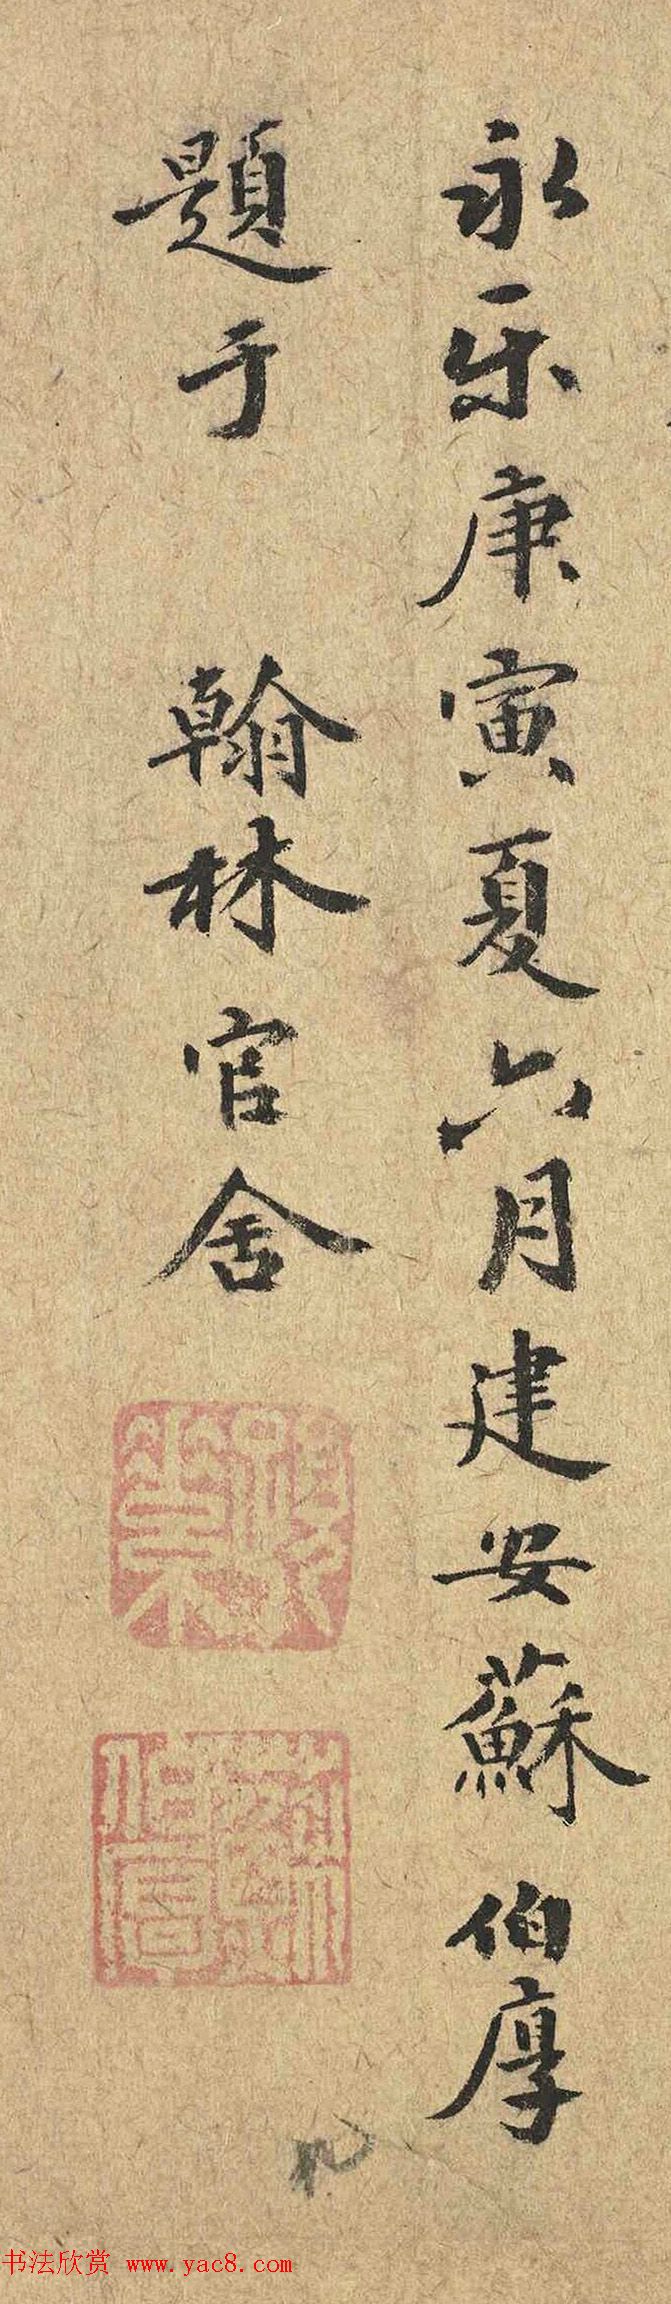 永乐庚寅夏六月建安蘇伯厚
題于 翰林官舍
書法欣赏 www.yac8.com